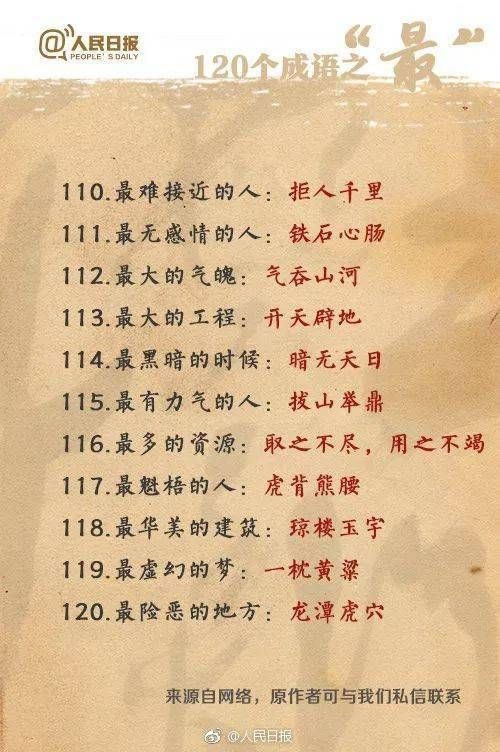 @人民日报
PEOPLE'S DAILY
120个成语之“最”
110.最难接近的人：拒人千里
111.最无感情的人：铁石心肠
112.最大的气魄：气吞山河
113.最大的工程：开天辟地
114.最黑暗的时候：暗无天日
115.最有力气的人：拔山举鼎
116.最多的资源：取之不尽，用之不竭
117.最魁梧的人：虎背熊腰
118.最华美的建筑：琼楼玉宇
119.最虚幻的梦：一枕黄粱
120.最险恶的地方：龙潭虎穴
来源自网络，原作者可与我们私信联系
@人民日报